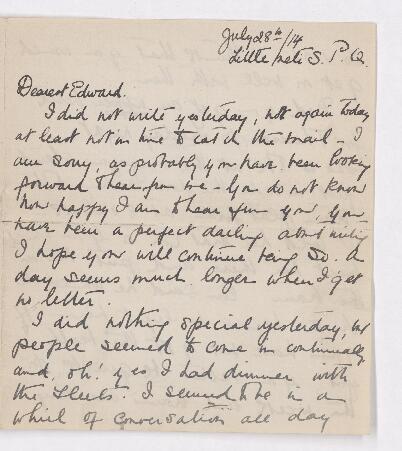 July 28th/14
Little Metis. P. Q.
Dearest Edward.
I did not write yesterday, not again today
at least not in time to catch the mail - I
am sorry, as probably you have been looking
forward to hear from me - You do not know
how happy I am to hear from you, you
have been a perfect darling about writing
I hope you will continue being so. A
day seems much longer when I get
no letter.
I did nothing special yesterday, but
people seemed to come in continually
and, oh! yes I had dinner with
the . I seemed to be in a
whirl of conversation all day